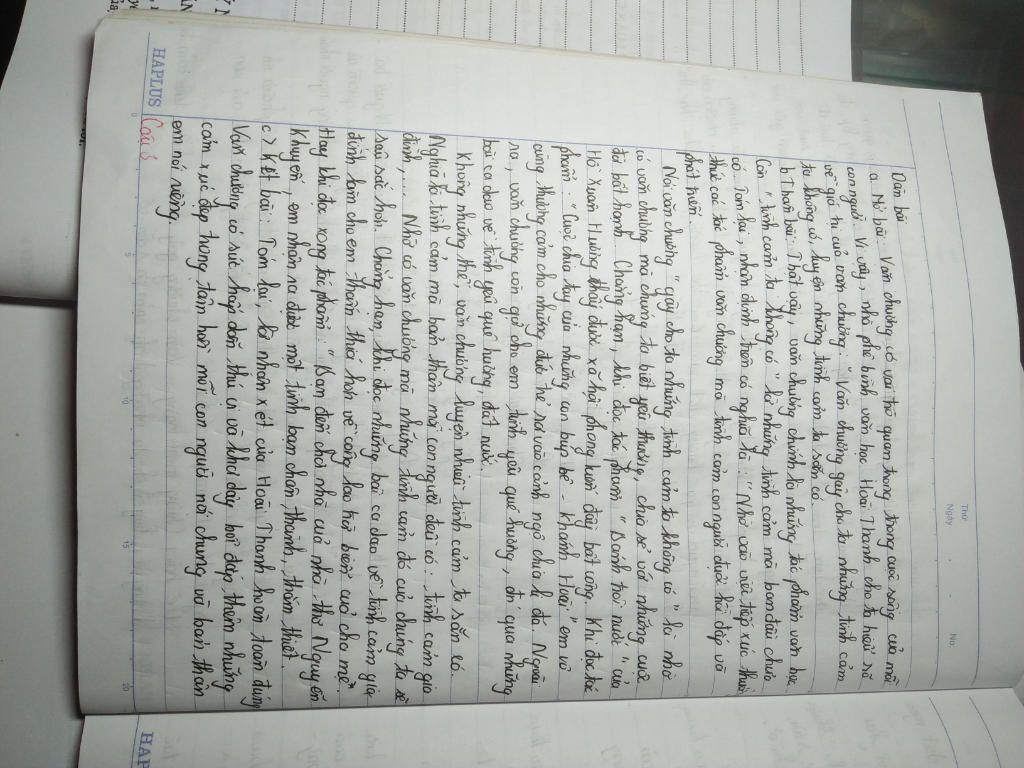 Thứ
Ngày
No.
Dàn bài
a. Mở bài: Văn chương có vai trò quan trọng trong cuộc sống của mỗi
con người. Vì vậy, nhà phê bình văn học Hoài Thanh cho ta hiểu rõ
về giá trị của văn chương: "Văn chương gây cho ta những tình cảm
ta không có, luyện những tình cảm ta sẵn có.
b Thân bài: Thật vậy, văn chương chính là những tác phẩm văn học
Còn "tình cảm ta không có" là những tình cảm mà ban đầu chưa
có. Tóm lại, nhận định trên có nghĩa là: "Nhờ vào việc tiếp xúc thưởng
thức các tác phẩm văn chương mà tình cảm con người được bồi đắp và
phát triển.
Nói văn chương "gây cho ta những tình cảm ta không có" là nhờ
có văn chương mà chúng ta biết yêu thương, chia sẻ với những cuộc
đời bất hạnh. Chẳng hạn, khi đọc tác phẩm "Bánh trôi nước" của
Hồ Xuân Hương thấy được xã hội phong kiến đầy bất công. Khi đọc tác
phẩm "Cuộc chia tay của những con búp bê - Khánh Hoài" em vô
cùng thương cảm cho những đứa trẻ rơi vào cảnh ngộ chia li đó. Ngoài
ra, văn chương còn gợi cho em tình yêu quê hương, đó qua những
bài ca dao về tình yêu quê hương, đất nước.
Không những thế, văn chương luyện những tình cảm ta sẵn có.
Nghĩa là tình cảm mà bản thân mỗi con người đều có: tình cảm gia
đình,.... Nhờ có văn chương mà những tình cảm đó của chúng ta sẽ
sâu sắc hơn. Chẳng hạn, khi đọc những bài ca dao về tình cảm gia
đình làm cho em thấm thía hơn về công lao trời biển của cha mẹ.
Hay khi đọc xong tác phẩm: "Bạn đến chơi nhà của nhà thơ Nguyễn
Khuyến, em nhận ra được một tình bạn chân thành, thắm thiết.
c) Kết bài: Tóm lại, lời nhận xét của Hoài Thanh hoàn toàn đúng
Văn chương có sức hấp dẫn thú vị và khơi dậy bồi đắp thêm những
cảm xúc đẹp trong tâm hồn mỗi con người nói chung và bản thân
em nói riêng.
Câu 3
HAPLUS
0
5
10
15
20
HAP